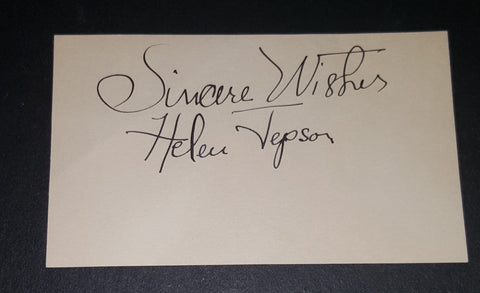 Sincere Wishes
Helen Jepson